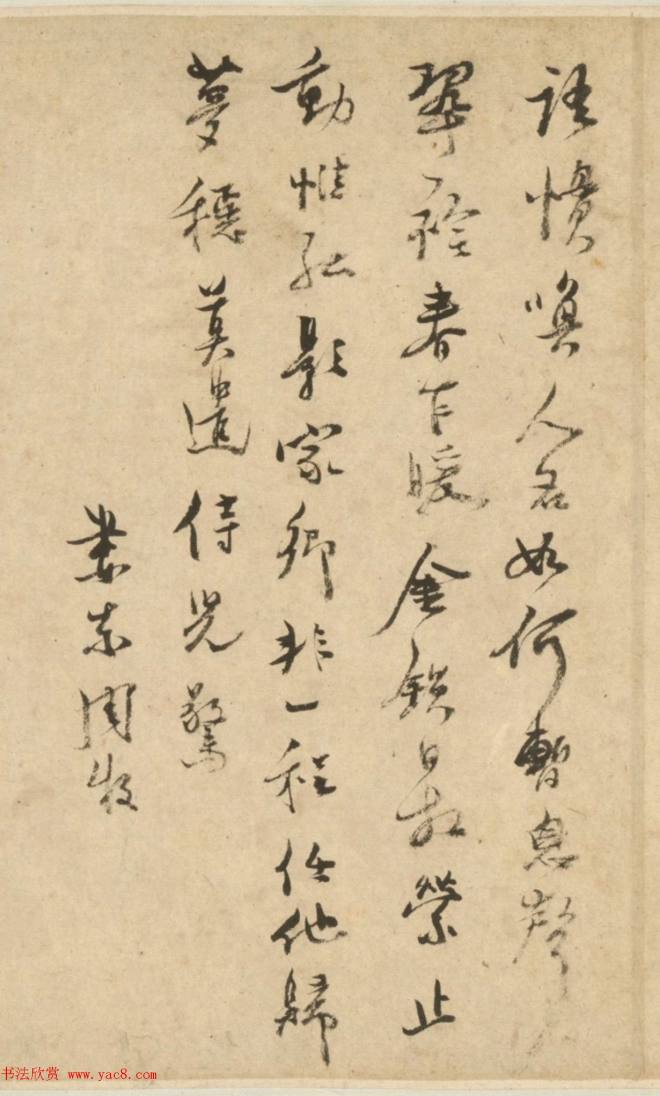 語慣喚人名如何暫息聲
翠襟春乍暖金鎖日相縈止
動惟孤影家鄉非一程任他歸
夢穩莫遣侍兒驚
婁東周牧
书法欣赏 www.yac8.com